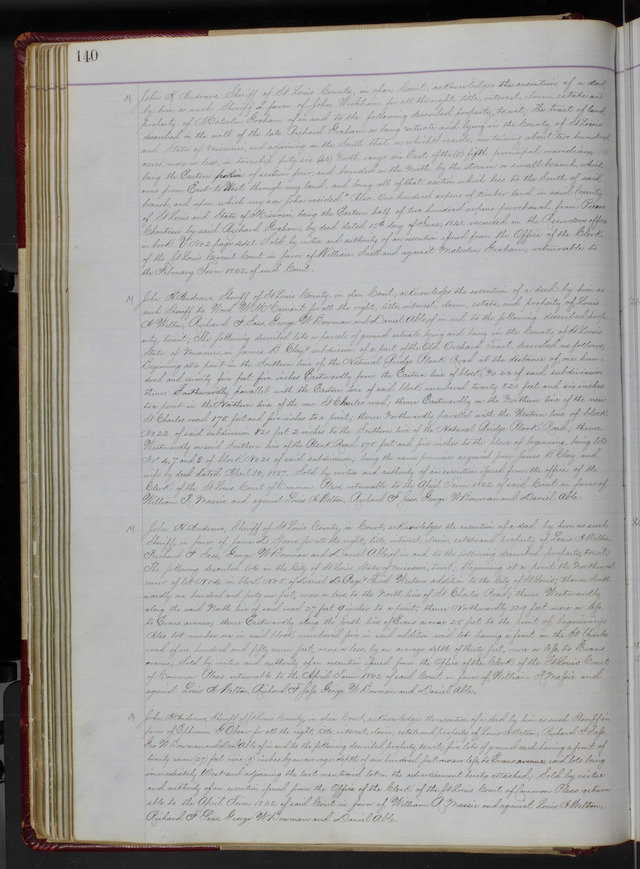 140
M John H Andrews Sheriff of St Louis County, in open Court, acknowledges the execution of a deed
by him as such Sheriff in favor of John Wickham for all the right, title, interest, claim, estate and
property of Malcolm Graham of in and to the following described property, to wit; The tract of land
described in the will of the late Richard Graham as being situate and lying in the County of St Louis
and State of Missouri, and adjoining on the South that on which I reside, containing about two hundred
acres, more or less, in township forty six (46) North range six East of the (5) fifth principal meridian,
being the Eastern portion of section four, and bounded on the North by the stream or small branch, which
runs from East to West through my land, and being all of that section which lies to the South of said
branch, and upon which my son John resided." Also two hundred arpens of timber land in said County
of St Louis and State of Missouri being the Eastern half of two hundred arpens purchased from Pierre
Chouteau by said Richard Graham, by deed dated 15th day of June, 1841, recorded in the Recorders office
in book V No 2 page 241. Sold by virtue and authority of an execution issued from the Office of the Clerk
of the St Louis Circuit Court in favor of William Scott and against Malcolm Graham, returnable to
the February Term 1862 of said Court.
M John H Andrews, Sheriff of St Louis County, in open Court, acknowledges the execution of a deed by him as
such Sheriff to Wood W McCament for all the right, title, interest, claim, estate and property of Louis
A Welton, Richard F Sass, George W Bowman and Daniel Able of in and to the following described prop-
erty, to wit; The following described lots or parcels of ground situate lying and being in the County of St Louis
State of Missouri, in James B Clay's subdivision of a part of the Old Orchard Tract, described as follows;
Beginning at a point in the Southern line of the Natural Bridge Plank Road at the distance of one hun-
dred and seventy five feet five inches Eastwardly from the Eastern line of block No 22 of said subdivision
thence Southwardly parallel with the Eastern line of said block numbered twenty 821 feet and six inches
to a point in the Northern line of the new St Charles road, thence Eastwardly on the Northern line of the new
St Charles road 175 feet and five inches to a point; thence Northwardly parallel with the Western line of block
No 22 of said subdivision 820 feet 2 inches to the Southern line of the Natural Bridge Plank Road; thence
Westwardly on said Southern line of the Plank Road 175 feet and five inches to the place of beginning, being lots
No 4, 7 and 8 of block No 21 of said subdivision, being the same premises acquired from James B Clay and
wife by deed dated April 20, 1857. Sold by virtue and authority of an execution issued from the office of the
Clerk of the St Louis Court of Common Pleas, returnable to the April Term 1862 of said Court in favor of
William A Massie and against Louis A Welton, Richard F Sass, George W Bowman and Daniel Able.
M John H Andrews, Sheriff of St Louis County, in open Court, acknowledges the execution of a deed by him as such
Sheriff in favor of James D for all the right, title, interest, claim, estate and property of Louis A Welton,
Richard F Sass, George W Bowman and Daniel Able of in and to the following described property, to wit;
The following described lots in the City of St Louis, State of Missouri, to wit; Beginning at a point the Northwest
corner of lot No 4 in block No 5 of Daniel D Page's Third Western addition to the City of St Louis; thence South
wardly one hundred and forty six feet, more or less, to the North line of St Charles Road; thence Westwardly
along the said North line of said road 27 feet 9 inches to a point; thence Northwardly 129 feet more or less
to Evans avenue; thence Eastwardly along the South line of Evans avenue 25 feet to the point of beginning.
Also lot number six in said block numbered five in said addition said lot having a front on the St Charles
road of one hundred and fifty seven feet, more or less, by an average depth of thirty feet, more or less, to Evans
avenue, Sold by virtue and authority of an execution issued from the Office of the Clerk of the St Louis Court
of Common Pleas returnable to the April Term 1862 of said Court in favor of William A Massie and
against Louis A Welton, Richard F Sass, George W Bowman and Daniel Able.
M John H Andrews, Sheriff of St Louis County, in open Court, acknowledges the execution of a deed by him as such Sheriff in
favor of Ephraim G Obear for all the right, title, interest, claim, estate and property of Louis A Welton, Richard F Sass,
Geo W Bowman and Daniel Able of in and to the following described property, to wit; five lots of ground each having a front of
twenty seven (27) feet nine (9) inches by an average depth of one hundred feet more or less, to Evans avenue, said lots being
immediately West and adjoining the last mentioned lot in the advertisement hereto attached, Sold by virtue
and authority of an execution issued from the Office of the Clerk of the St Louis Court of Common Pleas return-
able to the April Term 1862 of said Court in favor of William A Massie and against Louis A Welton,
Richard F Sass, George W Bowman and Daniel Able.